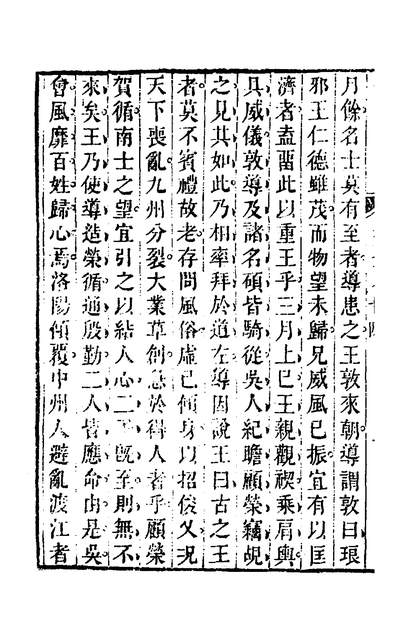 月餘名士莫有至者導患之王敦來朝導謂敦曰琅
邪王仁德雖茂而物望未歸兄威風已振宜有以匡
濟者盍畱此以重王乎三月上巳王親觀禊乘肩輿
具威儀敦導及諸名碩皆騎從吳人紀瞻顧榮竊覘
之見其如此乃相率拜於道左導因說王曰古之王
者莫不賓禮故老存問風俗虛已傾身以招俊乂況
天下喪亂九州分裂大業草創急於得人者乎顧榮
賀循南士之望宜引之以結人心二子既至則無不
來矣王乃使導造榮循通殷勤二人皆應命由是吳
會風靡百姓歸心焉洛陽傾覆中州人避亂渡江者